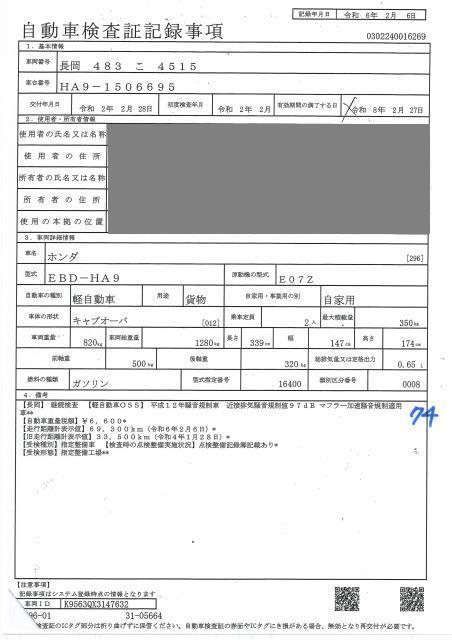 記録年月日 令和 6年 2月 6日
自動車検査証記録事項
0302240016269
1．基本情報
車両番号 長岡 483 こ 4515
車台番号 HA9-1506695
交付年月日 令和 2年 2月 28日 初度検査年月 令和 2年 2月 有効期間の満了する日 令和 8年 2月 27日
2．使用者・所有者情報
使用者の氏名又は名称
使用者の住所
所有者の氏名又は名称
所有者の住所
使用の本拠の位置
3．車両詳細情報
車名 ホンダ [296]
型式 EBD-HA9 原動機の型式 E07Z
自動車の種別 軽自動車 用途 貨物 自家用・事業用の別 自家用
車体の形状 キャブオーバ [012] 乗車定員 2人 最大積載量 350kg
車両重量 820kg 車両総重量 1280kg 長さ 339cm 幅 147cm 高さ 174cm
前軸重 500kg 後軸重 320kg 総排気量又は定格出力 0.65 l
燃料の種類 ガソリン 型式指定番号 16400 類別区分番号 0008
4．備考
【長岡】 継続検査 【軽自動車OSS】 平成12年騒音規制車 近接排気騒音規制値97dB マフラー加速騒音規制適用
車**
【自動車重量税額】¥6,600*
【走行距離計表示値】69,300km（令和6年2月6日）*
【旧走行距離計表示値】33,500km（令和4年1月28日）*
【受検種別】指定整備車 【検査時の点検整備実施状況】点検整備記録簿記載あり*
【受検形態】指定整備工場**
74
【注意事項】
記録事項はシステム登録時点の情報となります
車両ID K9563QX3147632
96-01 31-05664
検査証のICタグ部分は折り曲げずに保管ください。自動車検査証の券面やICタグにき損がある場合、無効となり再交付が必要です。